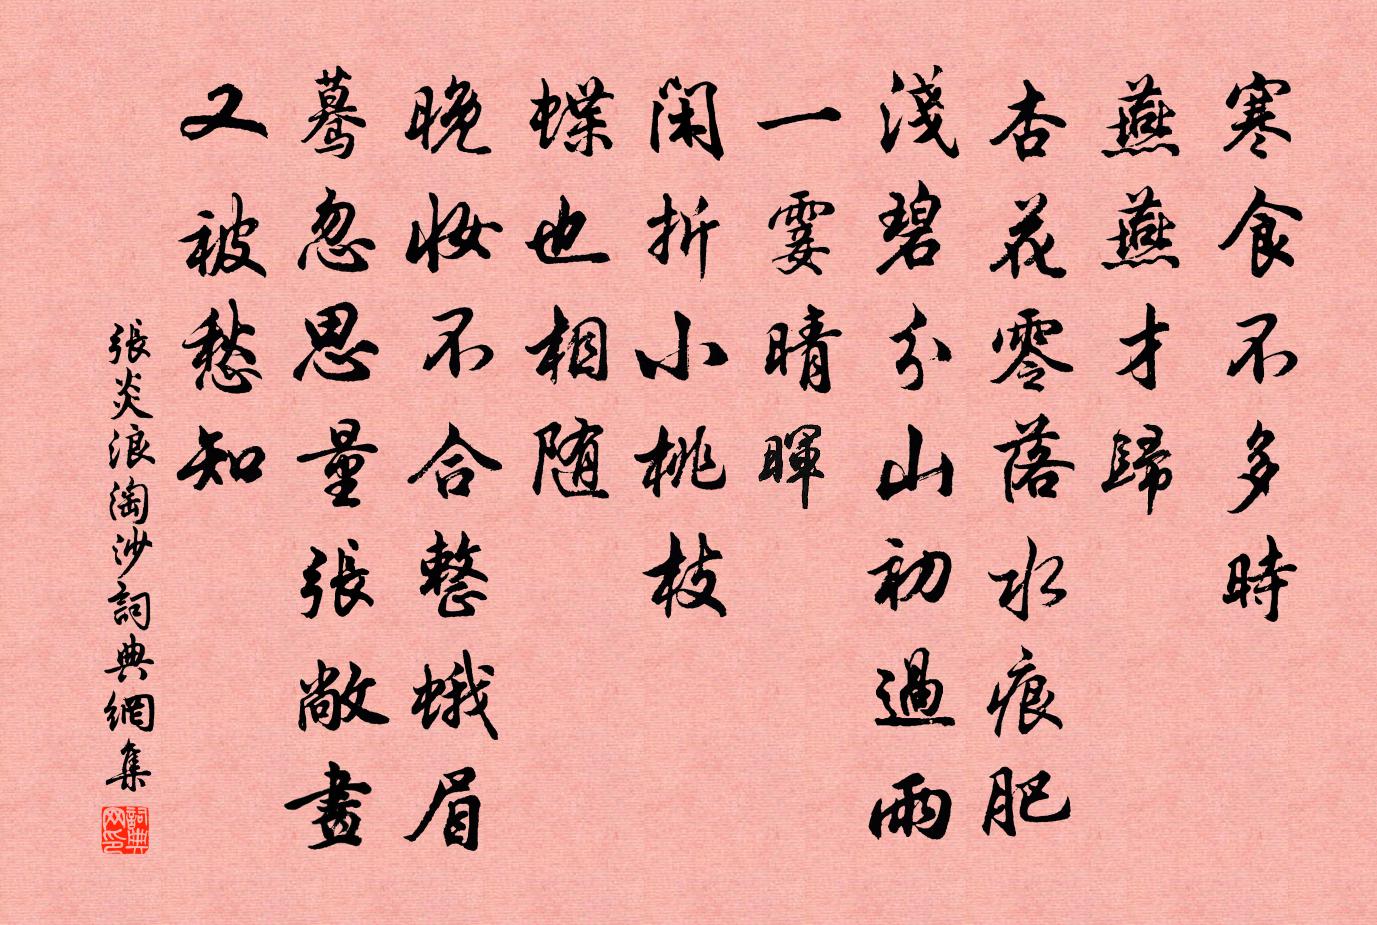 寒食不多時
燕燕才歸
杏花零落水痕肥
淺碧分山初過雨
一霎晴暉
閑折小桃枝
蝶也相随
晚妝不合整蛾眉
驀忽思量張敞畫
又被愁知
張炎浪淘沙詞典網集
詞典网印